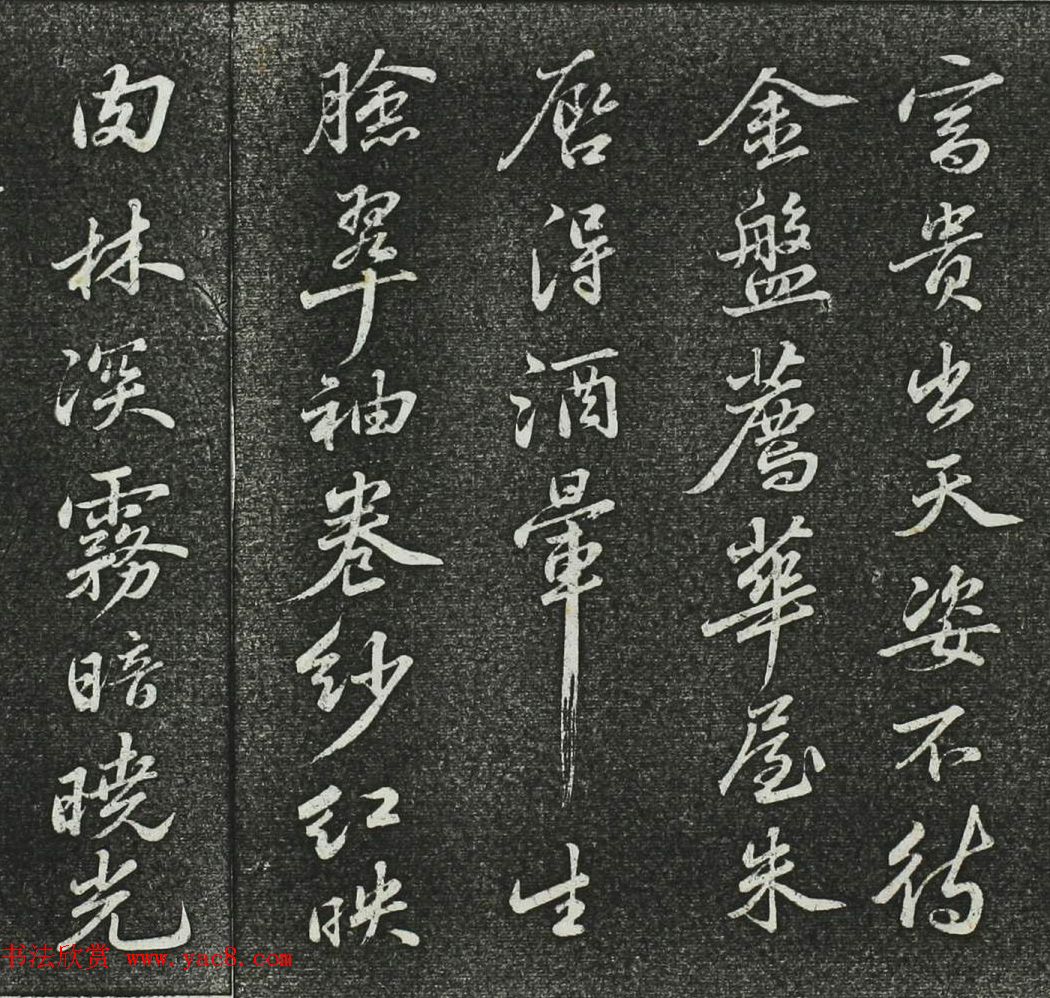 富貴出天姿不待
金盤薦華屋朱
唇得酒暈生
臉翠袖卷紗紅映
肉林深霧暗曉光
书法欣赏 www.yac8.com